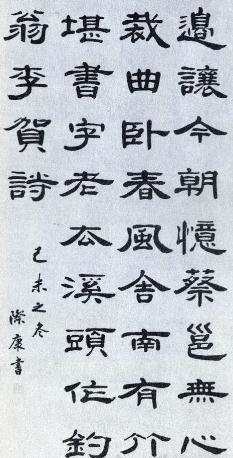 邊讓今朝憶蔡邕無心
裁曲卧春風舍南有竹
堪書字老去溪頭作釣
翁李賀詩
己未之冬
際康書